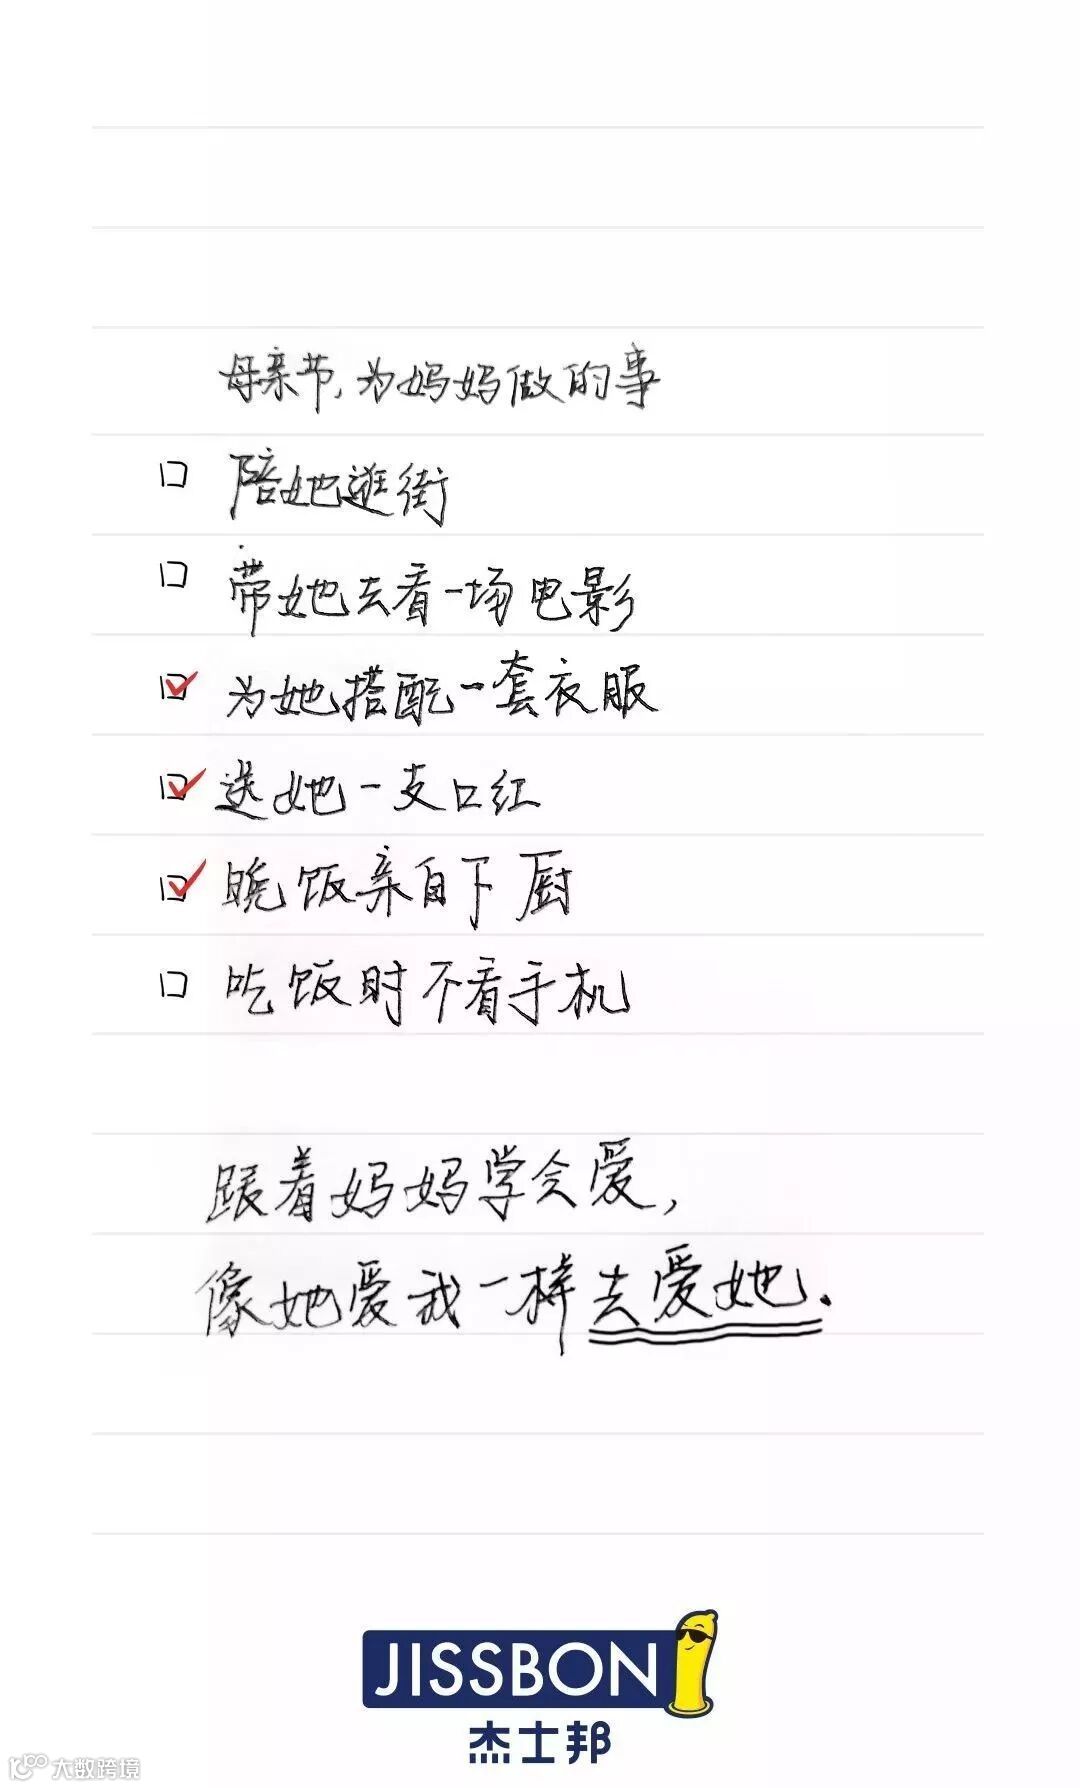 母亲节,为妈妈做的事
陪她逛街
带她去看一场电影
为她搭配一套衣服
送她一支口红
晚饭亲自下厨
吃饭时不看手机
跟着妈妈学会爱,
像她爱我一样去爱她.
JISSBON
杰士邦
大数跨境